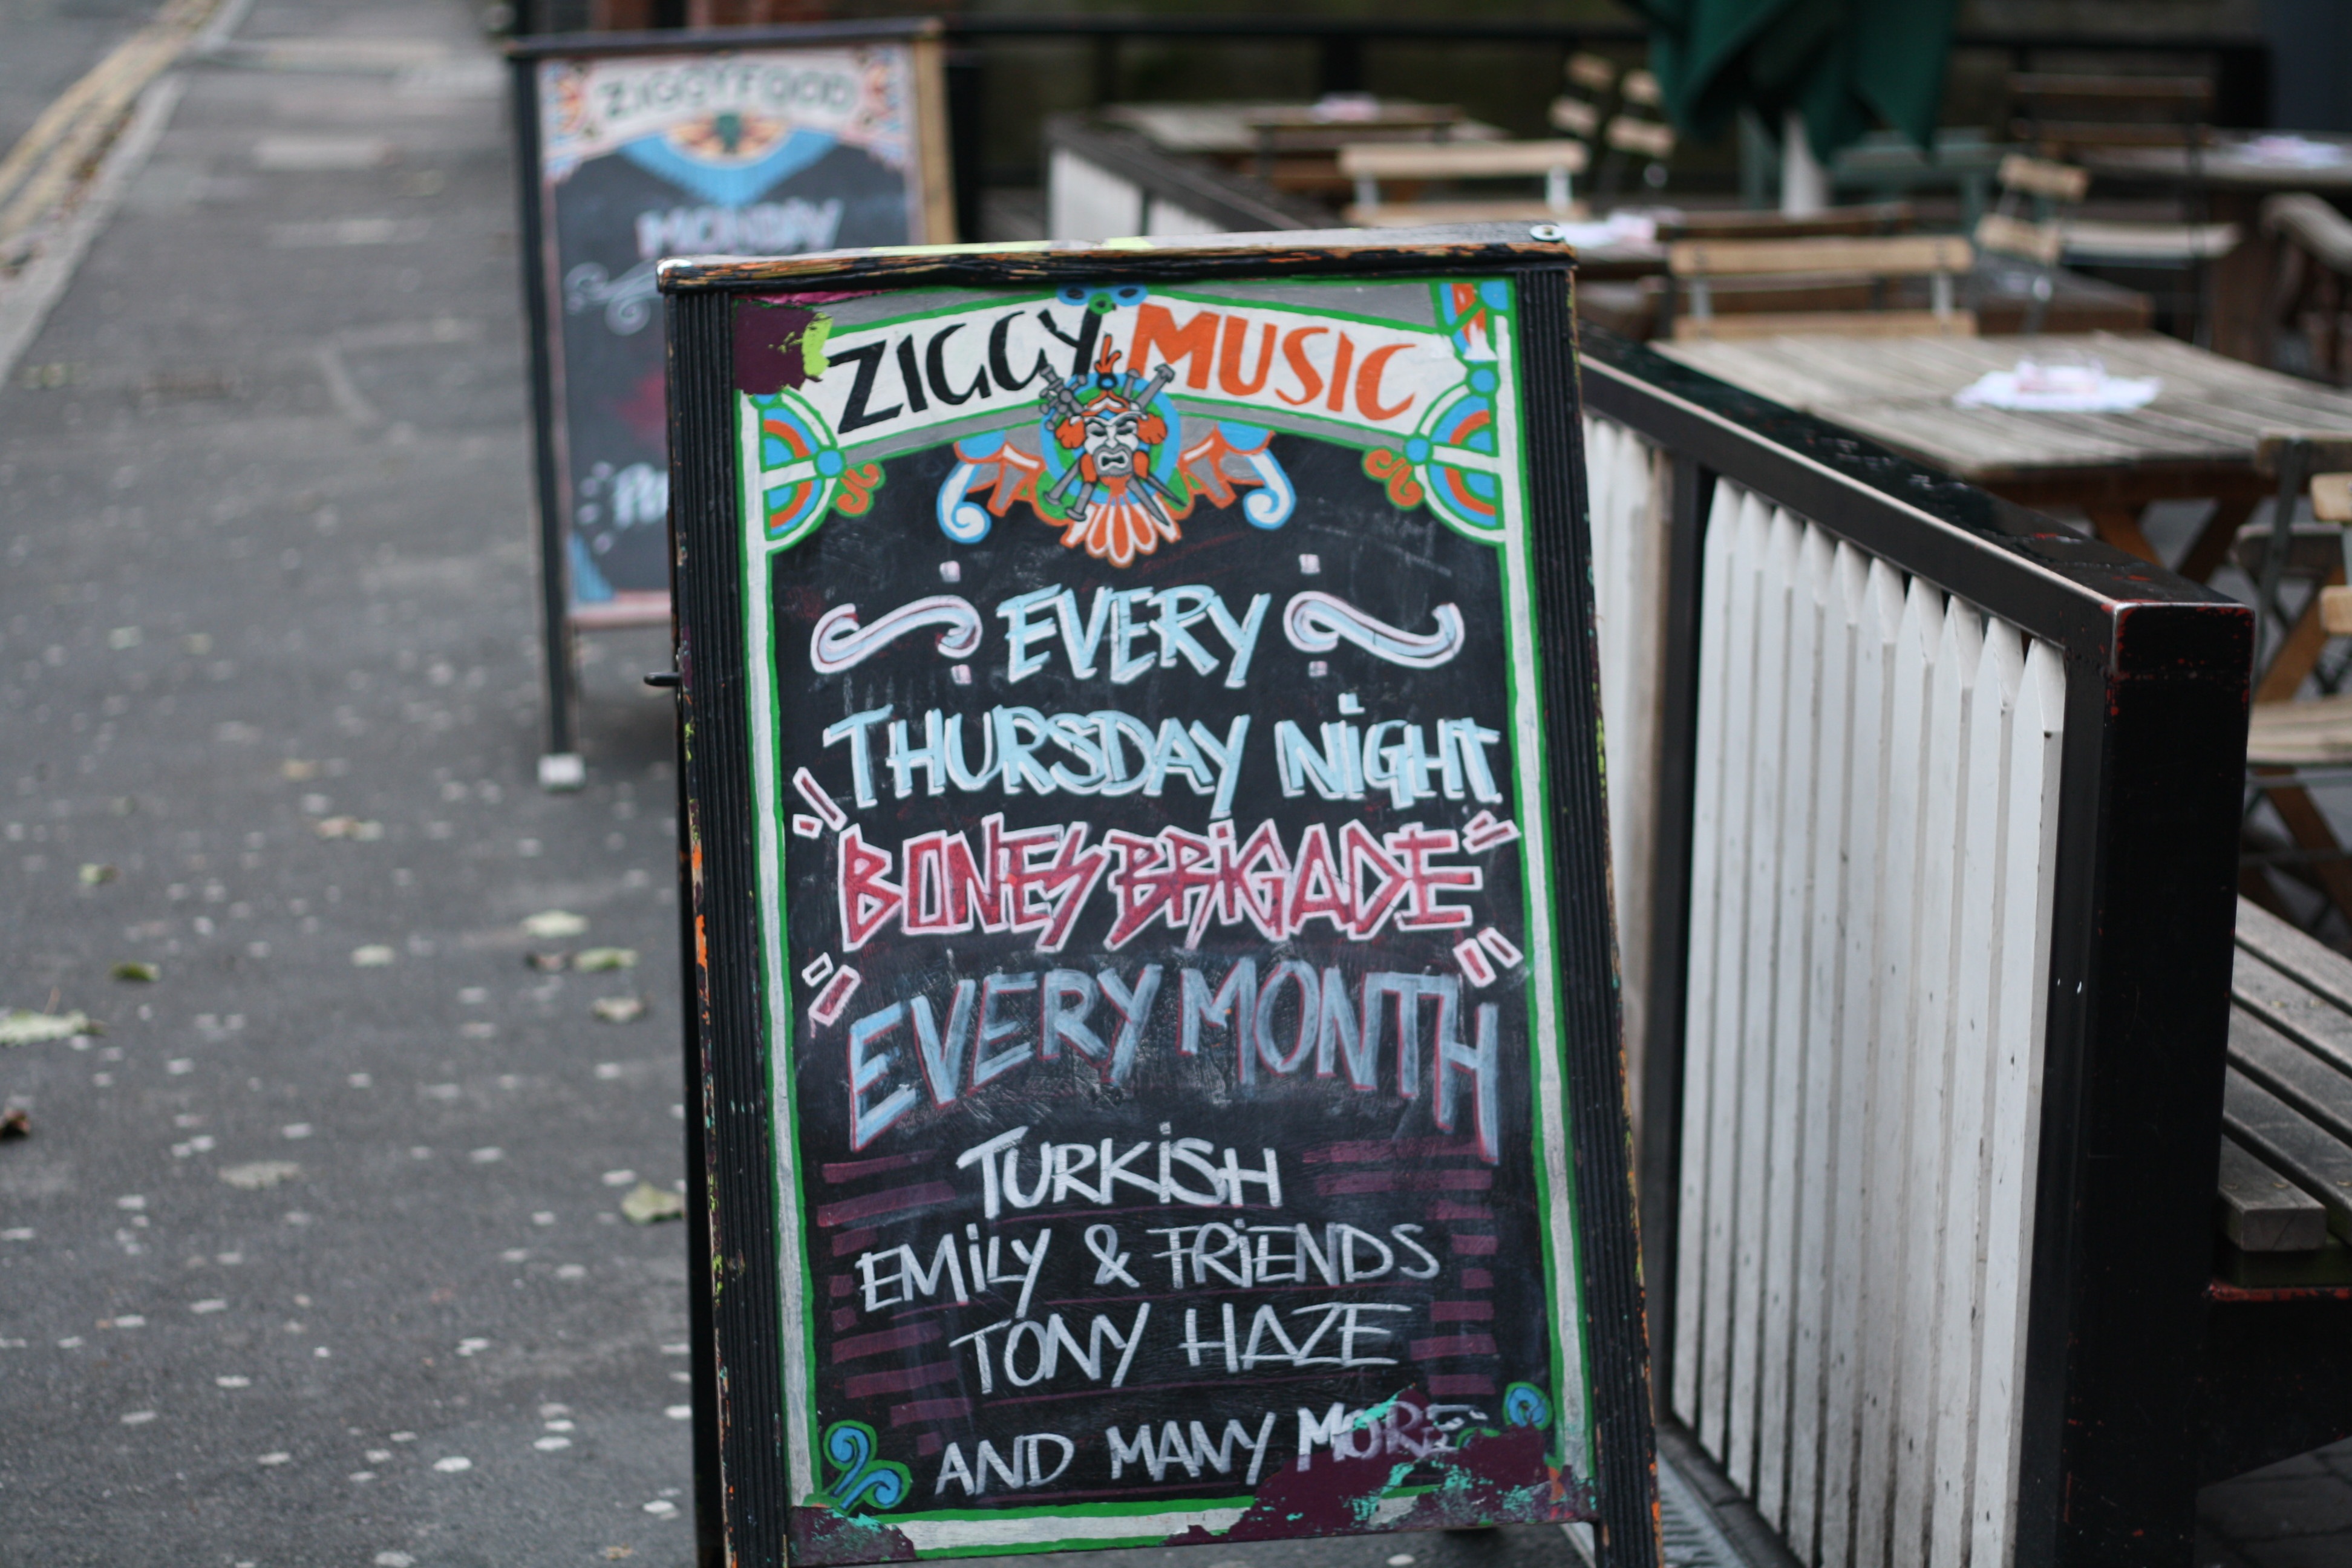 ZIGGYFOOD
MONDAY
ZIGGY MUSIC
EVERY
THURSDAY NIGHT
BONES BRIGADE
EVERY MONTH
TURKISH
EMILY & FRIENDS
TONY HAZE
AND MANY MORE